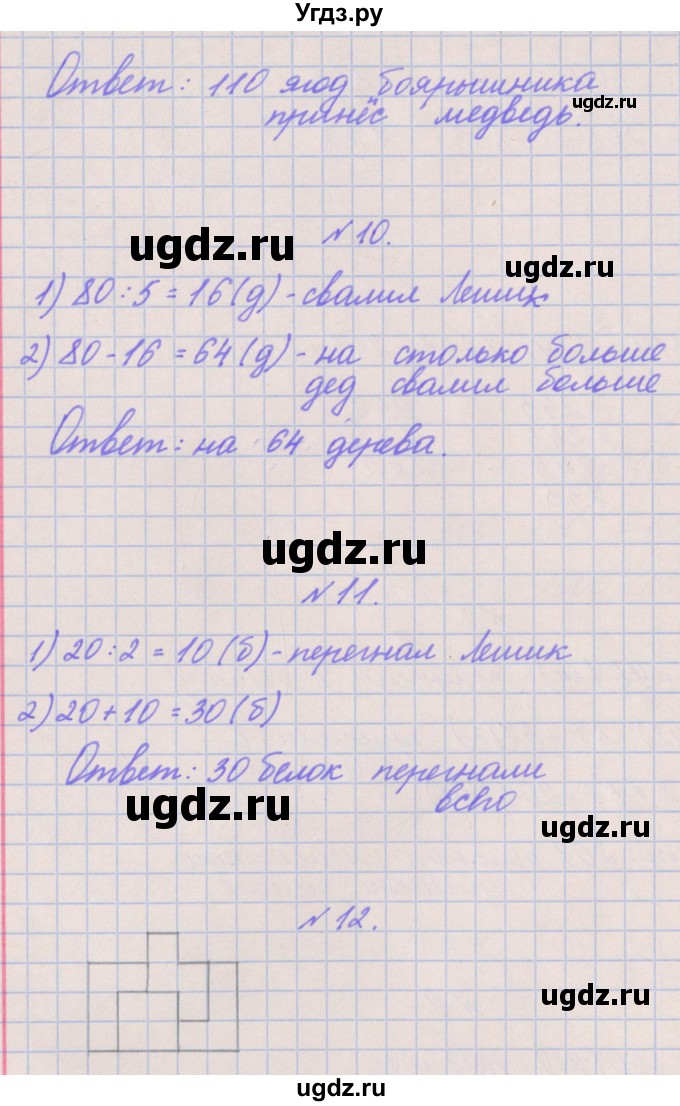 Угдз.ру
Ответ: 110 ягод боярышника
ugdz.ru
принёс медведь.
№10.
ugdz.ru
ugdz.ru
1) 80:5=16(д)-свалил Лешик
2) 80-16=64(д)-на столько больше
дед свалил больше
Ответ: на 64 дерева.
ugdz.ru
№11.
1) 20:2=10(б)-перегнал Лешик
2) 20+10=30(б)
Ответ: 30 белок перегнали
ugdz.ru
всего
ugdz.ru
№12.
ugdz.ru
ugdz.ru